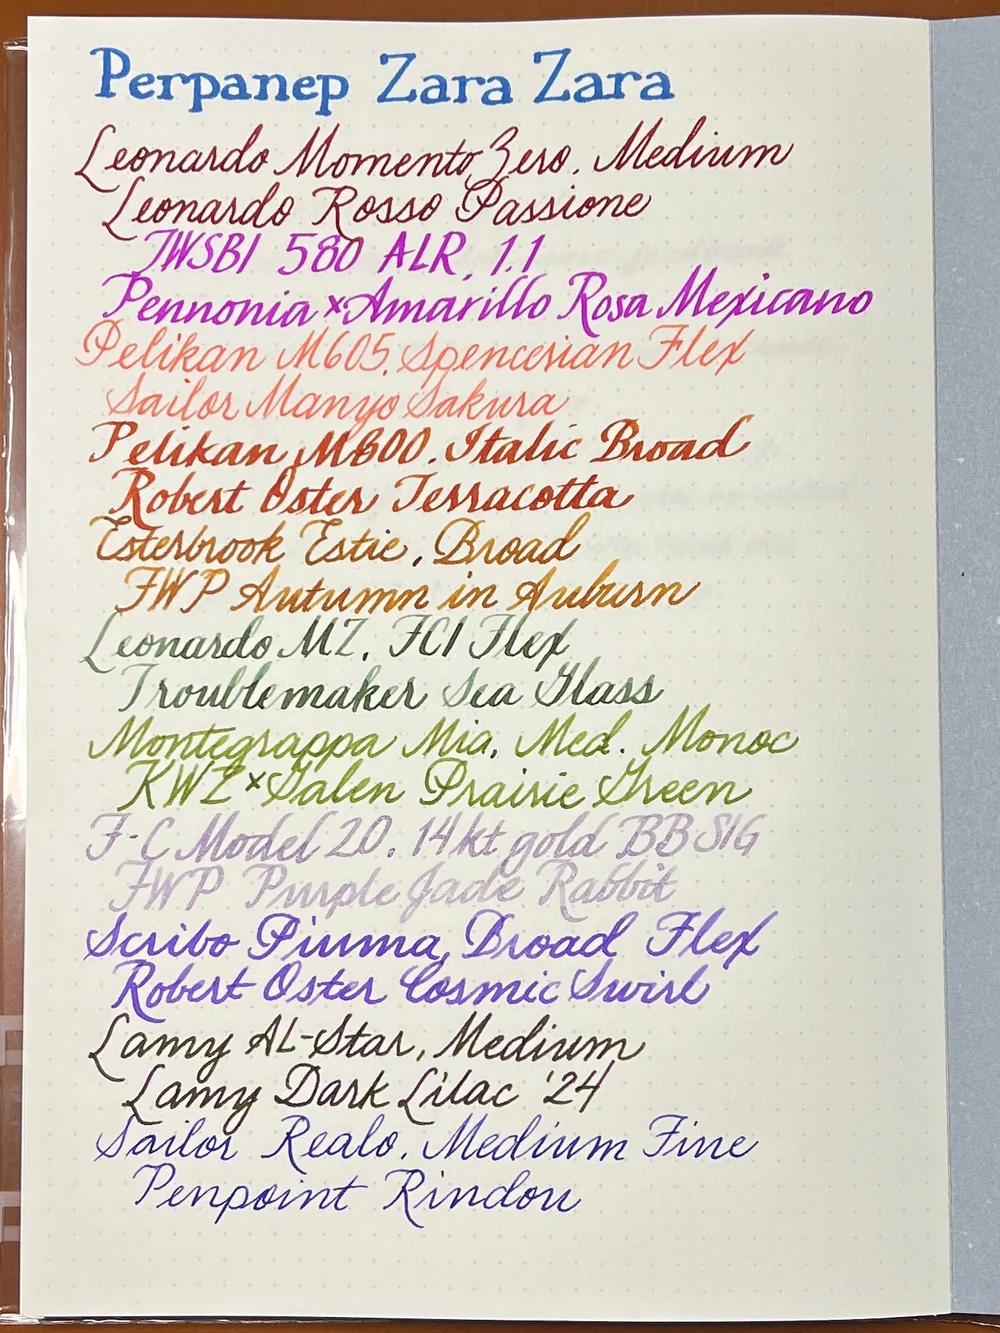 Perpanep Zara Zara
Leonardo Momento Zero. Medium
Leonardo Rosso Passione
TWSBI 580 ALR, 1.1
Pennonia × Amarillo Rosa Mexicano
Pelikan M605. Spencerian Flex
Sailor Manyo Sakura
Pelikan M600. Italic Broad
Robert Oster Terracotta
Esterbrook Estie, Broad
FWP Autumn in Auburn
Leonardo MZ. FCI Flex
Troublemaker Sea Glass
Montegrappa Mia. Med. Monoc
KWZ × Galen Prairie Green
F-C Model 20. 14kt gold BB SIG
FWP Purple Jade Rabbit
Scribo Piuma, Broad Flex
Robert Oster Cosmic Swirl
Lamy AL-Star, Medium
Lamy Dark Lilac '24
Sailor Realo. Medium Fine
Penpoint Rindou